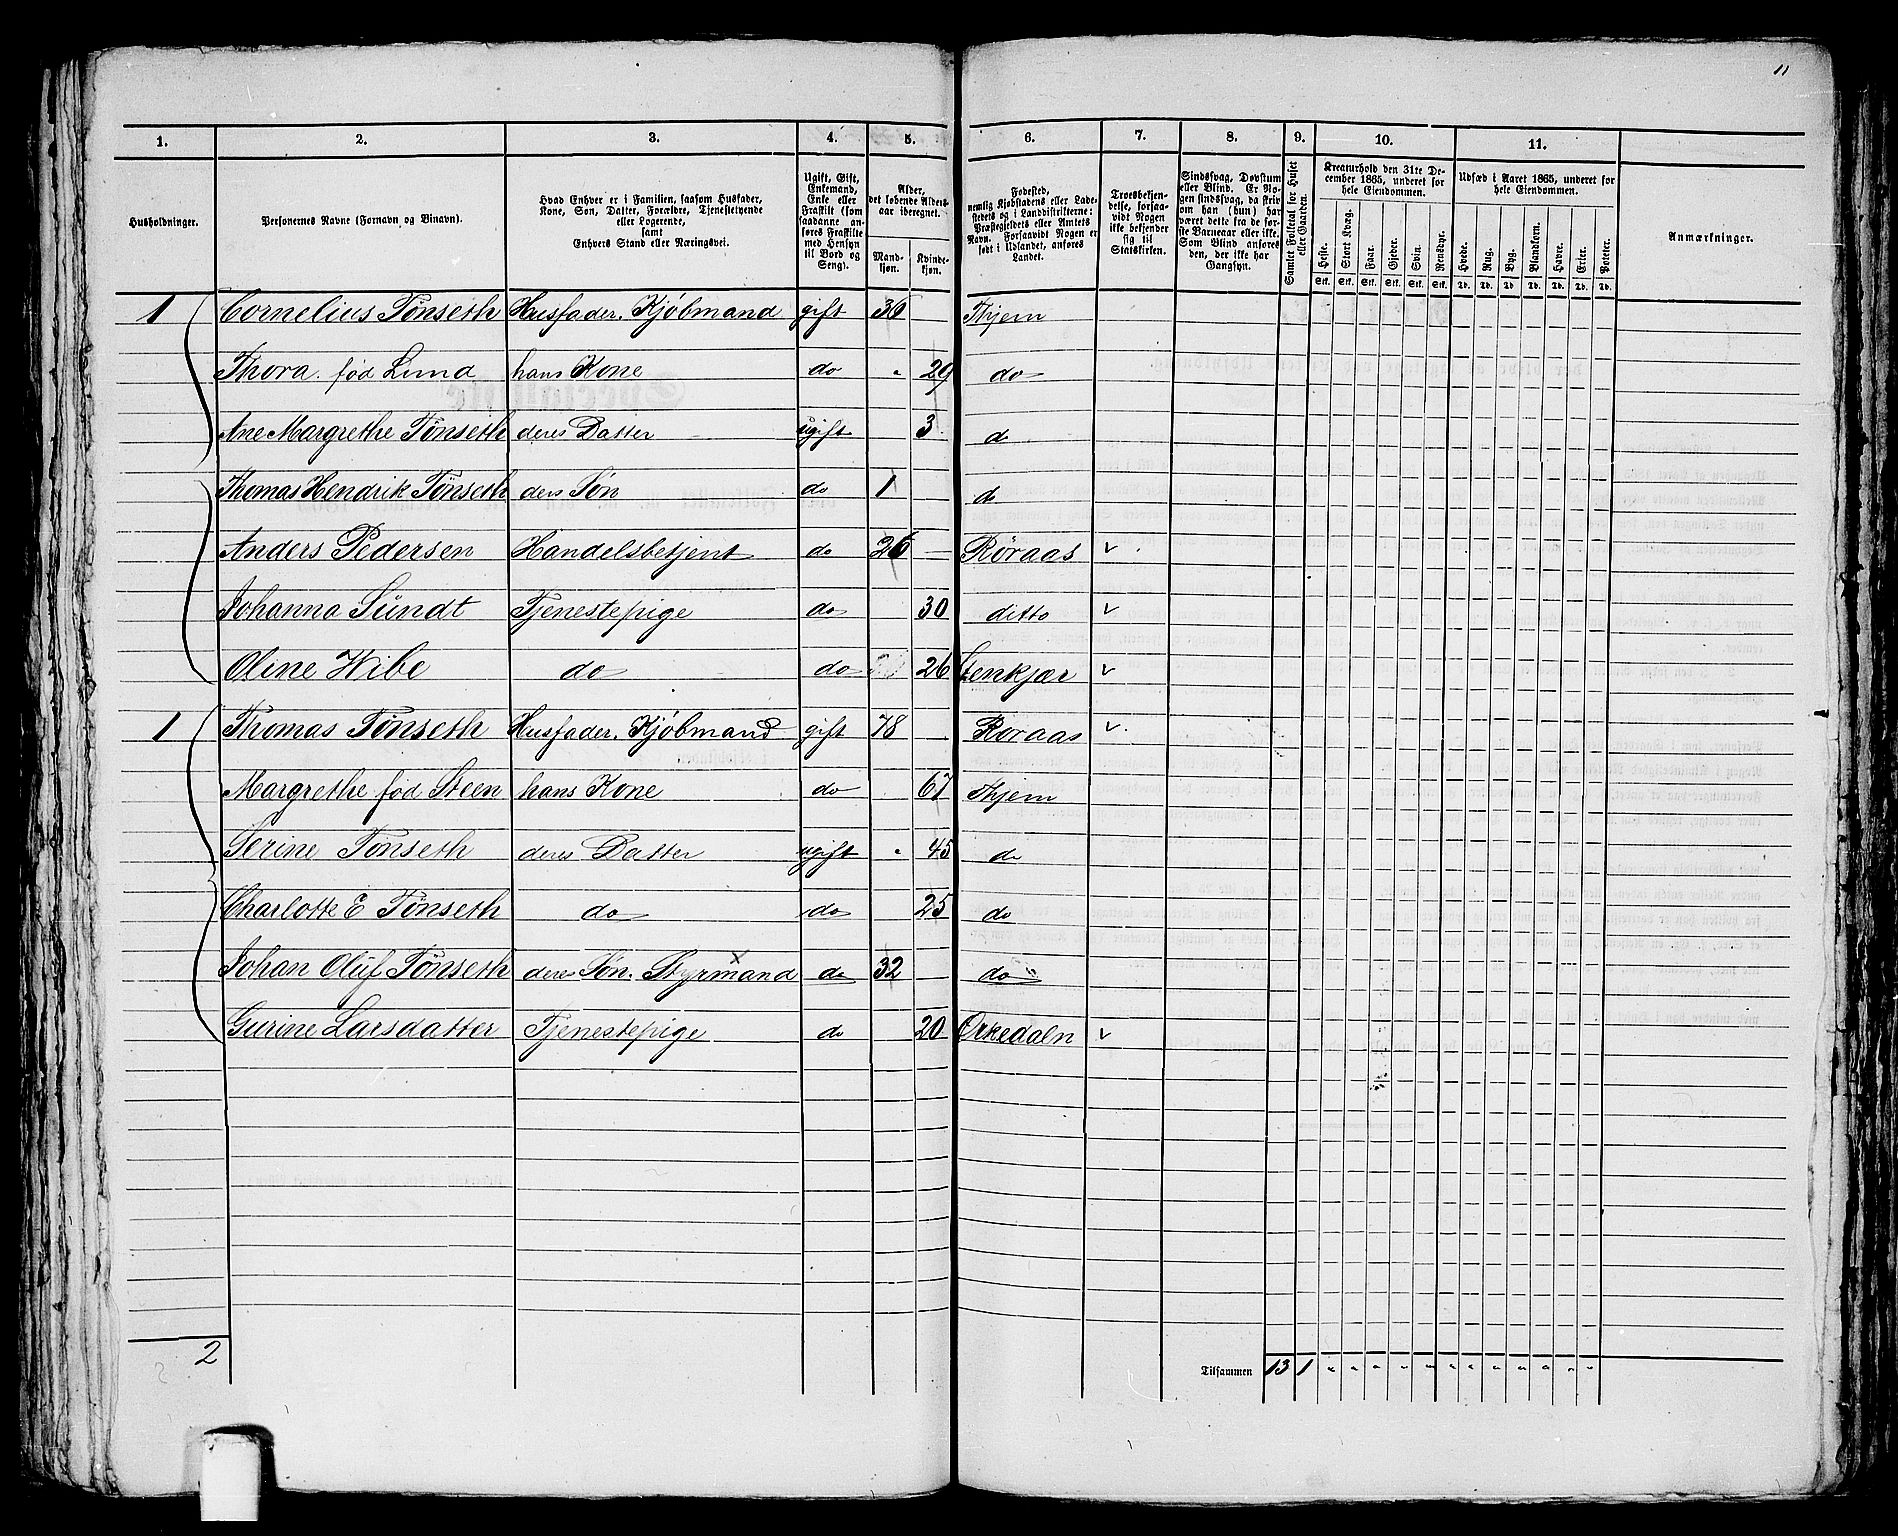 11
1. 2. 3. 4. 5. 6. 7. 8. 9. 10. 11.
Husholdninger.
Personernes Navne (Fornavn og Binavn).
Hvad Enhver er i Familien, saasom Husfader, Kone, Søn, Datter, Forældre, Tjenestetyende eller Logerende, samt Enhvers Stand eller Næringsvei.
Ugift, Gift, Enkemand, Enke eller Fraskilt (som saadanne anføres Fraskilte med Hensyn til Bord og Seng).
Alder, det løbende Aldersaar iberegnet.
Mandkjøn. Kvindekjøn.
Fødested, nemlig Kjøbstadens eller Ladestedets og i Landdistrikterne: Præstegjeldets eller Amtets Navn. Forsaavidt Nogen er født i Udlandet, anføres Landet.
Troesbekjendelse, forsaavidt Nogen ikke bekjender sig til Statskirken.
Sindssvag, Døvstum eller Blind. Er Nogen sindssvag, da skrives om han (hun) har været dette fra de første Barneaar eller ikke. Som Blind ansøres den, der ikke har Gangsyn.
Samlet Folketal for Huset eller Gaarden.
Kreaturhold den 31te December 1865, underet for hele Eiendommen.
Heste. Stort Kvæg. Faar. Gjeder. Svin. Rensdyr.
Udsæd i Aaret 1865, underet for hele Eiendommen.
Hvede. Rug. Byg. Blandkorn. Havre. Erter. Poteter.
Anmærkninger.
Stk. Stk. Stk. Stk. Stk. Stk. Td. Td. Td. Td. Td. Td. Td.
1 Cornelius Tønseth Husfader. Kjøbmand gift 36 Thjem
Thora. fød Lund hans Kone do 29 do
Ane Margrethe Tønseth deres Datter ugift 3 d
Thomas Hendrik Tønseth ders Søn do 1 d
Anders Pedersen Handelsbetjent do 26 Røraas
Johanna Sundt Tjenestepige do 30 ditto
Oline Wibe do do 26 Stenkjær
1 Thomas Tønseth Husfader. Kjøbmand gift 78 Røraas
Margrethe fød Steen hans Kone do 67 Thjem
Serine Tønseth deres Datter ugift 45 do
Charlotte E Tønseth do do 25 do
Johan Oluf Tønseth deres Søn. Styrmand do 32 do
Gurine Larsdatter Tjenestepige do 20 Orkedaln
2
Tilsammen 13 1